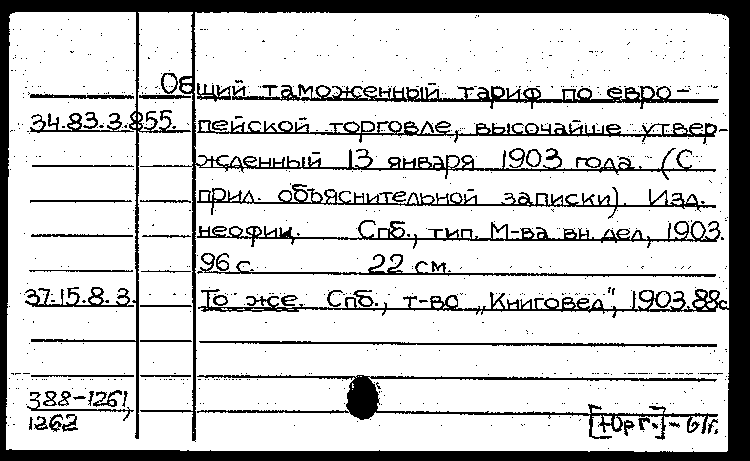 Общий таможенный тариф по евро-
34.83.3.855. пейской торговле, высочайше утвер-
жденный 13 января 1903 года. (С
прил. объяснительной записки). Изд.
неофиц. Спб., тип. М-ва вн. дел, 1903.
96 с. 22 см.
37-15.8.3. То же. Спб., т-во „Книговед“, 1903. 88с
388-1261,
1262